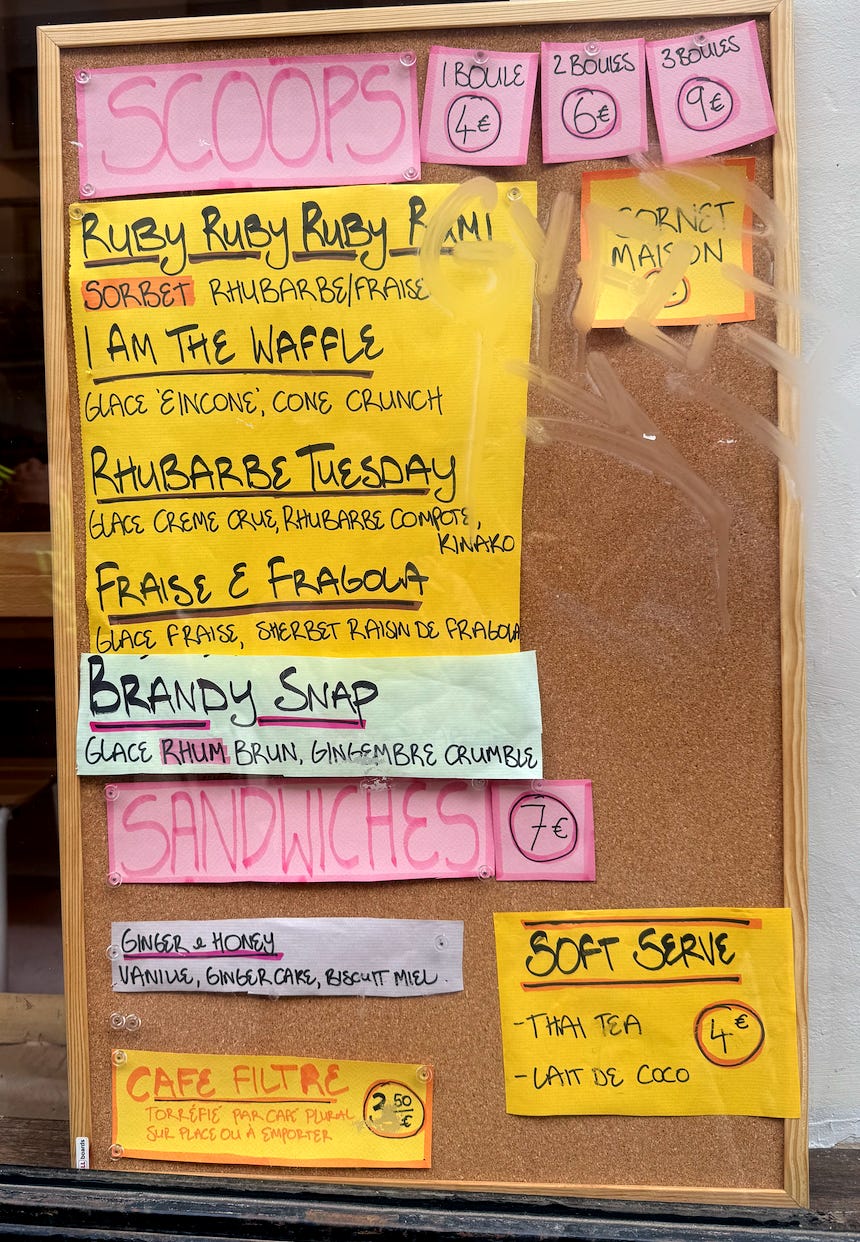 SCOOPS
1 BOULE
4€
2 BOULES
6€
3 BOULES
9€
CORNET
MAISON
RUBY RUBY RUBY RAMI
SORBET RHUBARBE/FRAISE
I AM THE WAFFLE
GLACE 'EINCONE', CONE CRUNCH
RHUBARBE TUESDAY
GLACE CREME CRUE, RHUBARBE COMPOTE,
KINAKO
FRAISE & FRAGOLA
GLACE FRAISE, SHERBET RAISIN DE FRAGOLA
BRANDY SNAP
GLACE RHUM BRUN, GINGEMBRE CRUMBLE
SANDWICHES
7€
GINGER & HONEY
VANILLE, GINGER CAKE, BISCUIT MIEL
SOFT SERVE
-THAI TEA
4€
-LAIT DE COCO
CAFE FILTRE
TORRÉFIÉ PAR CAFÉ PLURAL
SUR PLACE OU À EMPORTER
3 50
€
LL boards